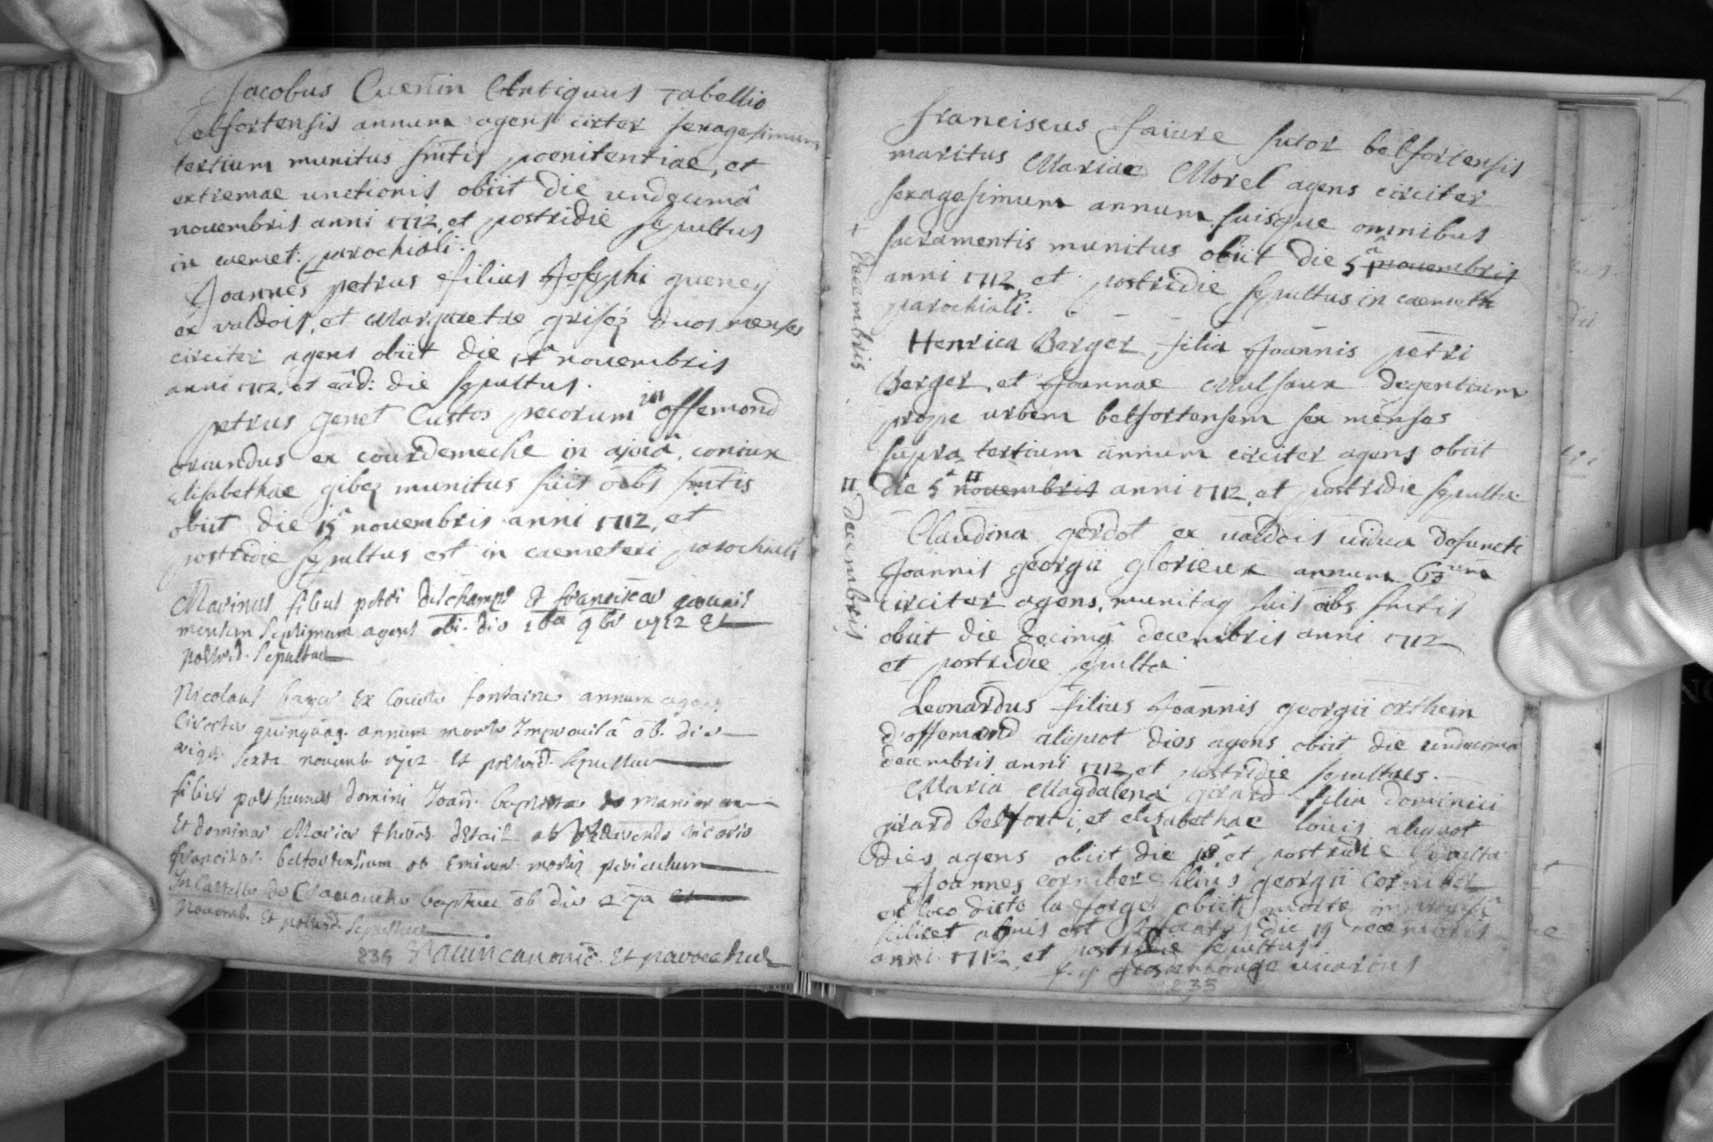 Jacobus Cuenin Antiquus Tabellio
belfortensis annum agens circter sexagesimum
tertium munitus smtis poenitentiae, et
extremae unctionis obiit die undecimâ
novembris anni 1712, et postridie sepultus
in caemet: parochiali.
Joannes petrus filius Josephi queney
ex valdois, et Margaretae grisez duos menses
circiter agens obiit die 14a novembris
anni 1712, et eâd: die sepultus.
petrus Genet Custos pecorum in offemond
oriundus ex courdemeche in ajoiâ, coniux
Elisabethae gibez munitus suis oibs smtis
obiit die 15a novembris anni 1712, et
postridie sepultus est in caemeteri parochiali
Marinus filius petri deschamps Et franciscae
mensem septimum agens obi. die 16a 9bris 1712 Et
postrid. sepultus
Nicolaus ex fontaine annum agens
Circiter quinquag. annum morte Improvisâ ob. die
vige. sexta novemb 1712 Et postrid. sepultus
filius posthumus domini Joan. baptistae de
Et dominae Mariae ab Reverendo vicario
francisco belfortensium ob Eminens mortis periculum
In Castello de baptisat ob die 27a
Novemb. Et postrid. sepultus
834 canonic. Et parochus
franciscus faivre sutor belfortensis
maritus Mariae Morel agens circiter
sexagesimum annum suisque omnibus
sacramentis munitus obiit die 5a novembris
+ decembris
anni 1712, et postridie sepultus in caemete
parochiali.
Henrica Berger filia Joannis petri
Berger, et Joannae Mulsaux degentium
prope urbem belfortensem sex menses
supra tertium annum circiter agens obiit
die 5a novembris anni 1712, et postridie sepulta
II decembris
Claudina gerdot ex valdois vidua defuncti
Joannis georgii glorieux annum 63um
circiter agens, munitaq suis oibs smtis
obiit die decimâ decembris anni 1712
et postridie sepulta
Leonardus filius Joannis georgii orthem
d'offemond aliquot dies agens obiit die undecima
decembris anni 1712, et postridie sepultus.
Maria Magdalena girard filia dominici
girard belforti, et elizabethae louis aliquot
dies agens obiit die 18, et postridie sepulta
Joannes corniber filius georgii corniber
ex loco dicto la forge obiit morte improvisâ
scilicet agnis est die 19 decembris
anni 1712, et postridie sepultus
vicarius
835